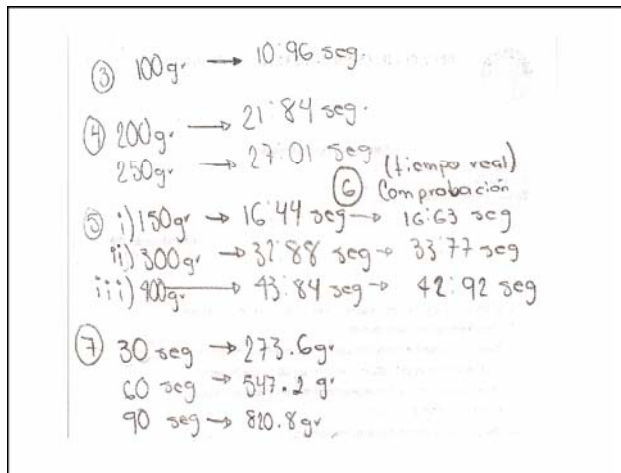 ③ 100gr → 10:96 seg.
④ 200gr → 21:84 seg.
250gr → 27:01 seg
⑥ (tiempo real)
Comprobación
⑤ i) 150gr → 16:44 seg → 16:63 seg
ii) 300gr → 32:88 seg → 33:77 seg
iii) 400gr → 43:84 seg → 42:92 seg
⑦ 30 seg → 273.6gr
60 seg → 547.2 gr
90 seg → 820.8gr